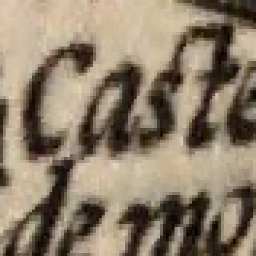 Caste
de mo